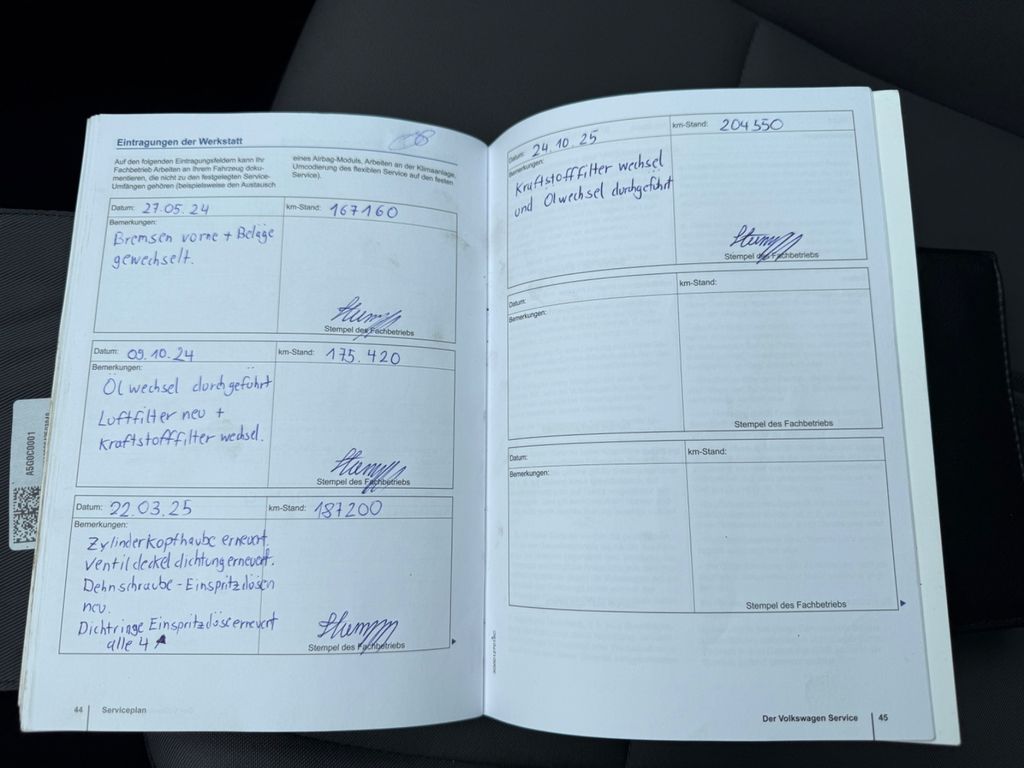 Eintragungen der Werkstatt
Auf den folgenden Eintragungsfeldern kann Ihr
Fachbetrieb Arbeiten an Ihrem Fahrzeug doku-
mentieren, die nicht zu den festgelegten Service-
Umfängen gehören (beispielsweise den Austausch
eines Airbag-Moduls, Arbeiten an der Klimaanlage,
Umcodierung des flexiblen Service auf den festen
Service).
Datum: 27.05.24 km-Stand: 167160
Bemerkungen:
Bremsen vorne + Beläge
gewechselt.
Stempel des Fachbetriebs
Datum: 09.10.24 km-Stand: 175.420
Bemerkungen:
Ölwechsel durchgeführt
Luftfilter neu +
Kraftstofffilter wechsel.
Stempel des Fachbetriebs
Datum: 22.03.25 km-Stand: 187200
Bemerkungen:
Zylinderkopfhaube erneuert.
Ventildeckeldichtung erneuert.
Dehnschraube - Einspritzdüsen
neu.
Dichtringe Einspritzdüse erneuert
alle 4
Stempel des Fachbetriebs
44 Serviceplan
Datum: 24.10.25 km-Stand: 204550
Bemerkungen:
Kraftstofffilter wechsel
und Ölwechsel durchgeführt
Stempel des Fachbetriebs
Datum: km-Stand:
Bemerkungen:
Stempel des Fachbetriebs
Datum: km-Stand:
Bemerkungen:
Stempel des Fachbetriebs
Der Volkswagen Service 45
A5G0C0001